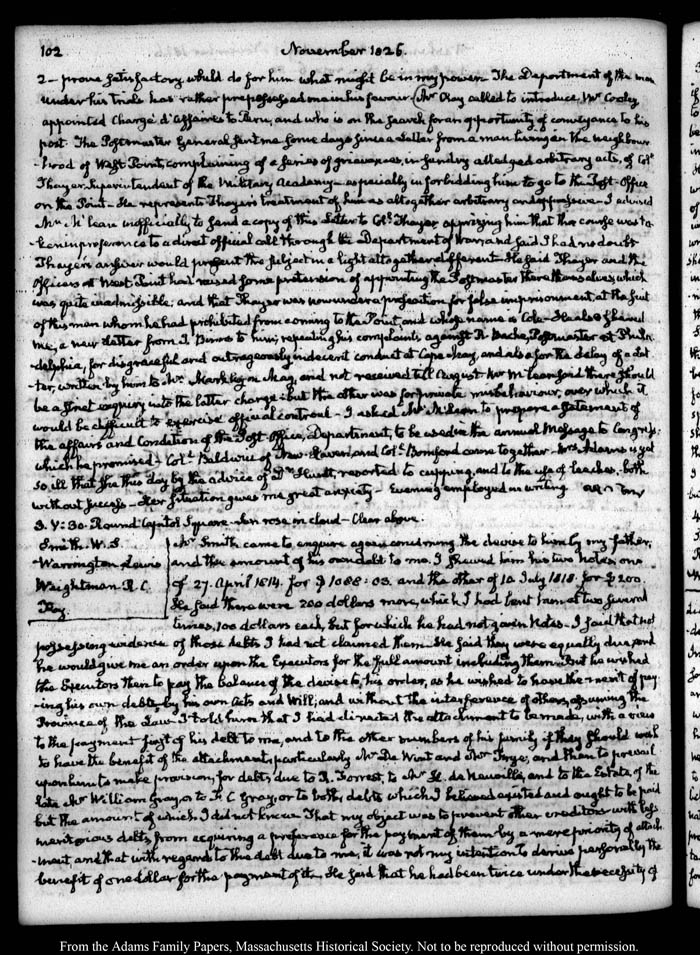 102 November 1826.
2 — prove satisfactory would do for him what might be in my power. The Department of the man
under his trials has rather prepossessed me in his favour. Mr Clay called to introduce Mr Cooley
appointed Chargé d'Affaires to Peru, and who is on the search for an opportunity of conveyance to his
post. The Postmaster General sent me some days since a Letter from a man living in the neighbour
-hood of West Point, complaining of a series of grievances, in sundry alledged arbitrary acts, of Coll.
Thayer Superintendent of the Military Academy — especially in forbidding him to go to the Post-Office
on the Point — He represents Thayer's treatment of him as altogether arbitrary and oppressive — I advised
Mr McLean unofficially to send a copy of this Letter to Coll. Thayer apprizing him that this course was ta-
ken in preference to a direct official call through the Department of War; and said I had no doubt
Thayer's answer would present the subject in a light altogether different. He said Thayer and the
Officers at West Point had raised some pretension of appointing the Postmaster there themselves, which
was quite inadmissible; and that Thayer was now under a prosecution for false imprisonment at the suit
of this man whom he had prohibited from coming to the Point, and whose name is Cole — He also shewed
me, a new Letter from J. Binns to him; repeating his complaints against R. Bache, Postmaster at Phila-
-delphia, for disgraceful and outrageously indecent conduct at Cape May, and also for the delay of a Let
-ter, written by him to Mr. Markley in May, and not received till August. Mr McLean said there should
be a strict enquiry into the latter charge: but the other was for private misbehaviour, over which it
would be difficult to exercise official controul — I asked Mr McLean to prepare a statement of
the affairs and Condition of the Post-Office, Department, to be used in the annual Message to Congress:
which he promised — Coll. Baldwin of New-Haven, and Coll. Bomford came together. Mrs Adams is yet
so ill that she this day by the advice of Dr Huntt, resorted to cupping, and to the use of leaches. both
without success — Her situation gives me great anxiety — Evening employed in writing.
3. V: 30. Round Capitol Square. Sun rose in cloud — Clear above.
Smith. W. S.
Warrington. Lewis
Weightman. R. C.
Roy.
Mr Smith came to enquire again concerning the devise to him by my father,
and the amount of his own debt to me. I shewed him his two notes, one
of 27. April 1814. for $1088:03. and the other of 10 July 1818. for $200.
He said there were 200 dollars more, which I had lent him at two several
times, 100 dollars each, but for which he had not given Notes — I said that not
possessing evidence of those debts I had not claimed them — He said they were equally due, and
he would give me an order upon the Executors for the full amount including them. But he wished
the Executors then to pay the balance of the devise to his order, as he wished to have the merit of pay
-ing his own debts by his own Acts and Will; and without the interference of others, assuming the
Province of the Law. I told him that I had directed the attachment to be made, with a view
to the payment first of his debt to me, and to the other members of his family if they should wish
to have the benefit of the attachment, particularly Mr De Wint and Mr Frye, and then to prevail
upon him to make provision, for debts due to J. Forrest, to Mr H. de Neuville, and to the Estate of the
late Mr William Gray, or to F. C Gray, or to both, debts which I believed existed and ought to be paid
but the amount of which I did not know. That my object was to prevent other creditors with less
meritorious debts, from acquiring a preference for the payment of them by a mere priority of attach
-ment and that with regard to the debt due to me, it was not my intention to derive personally the
benefit of one dollar for the payment of it. He said that he had been twice under the necessity of
From the Adams Family Papers, Massachusetts Historical Society. Not to be reproduced without permission.